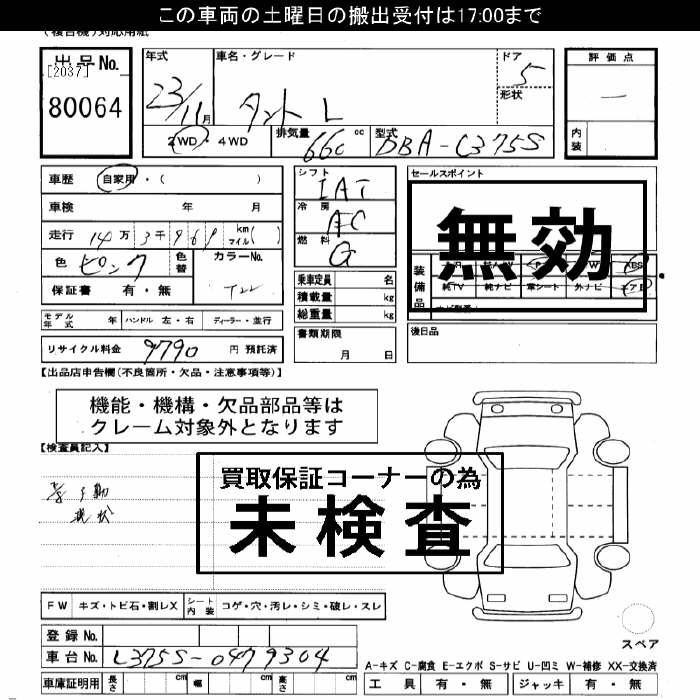 この車両の土曜日の搬出受付は17:00まで
(複合機)対応用紙
出品No.
[2037]
80064
年式 23/11月
車名・グレード タント L
ドア 5
形状
2WD・4WD
排気量 660 cc
型式 DBA-L375S
評価点
―
内装
車歴 自家用・( )
車検 年 月
走行 14万3千969 km マイル( )
色 ピンク 色替
カラーNo. T22
保証書 有・無
シフト IAT
冷房 AC
燃料 G
乗車定員 名
積載量 kg
総重量 kg
セールスポイント
無効
装備品
純TV 純ナビ 革シート 外ナビ エアB
モデル年式 年 ハンドル 左・右 ディーラー・並行
書類期限 月 日
後日品
リサイクル料金 9790 円 預託済
【出品店申告欄(不良箇所・欠品・注意事項等)】
機能・機構・欠品部品等は
クレーム対象外となります
【検査員記入】
買取保証コーナーの為
未検査
現状
FW キズ・トビ石・割レX シート内装 コゲ・穴・汚レ・シミ・破レ・スレ
登録No.
車台No. L375S-0479304
スペア
A-キズ C-腐食 E-エクボ S-サビ U-凹ミ W-補修 XX-交換済
車庫証明用 長さ cm 幅 cm 高さ cm
工具 有・無 ジャッキ 有・無